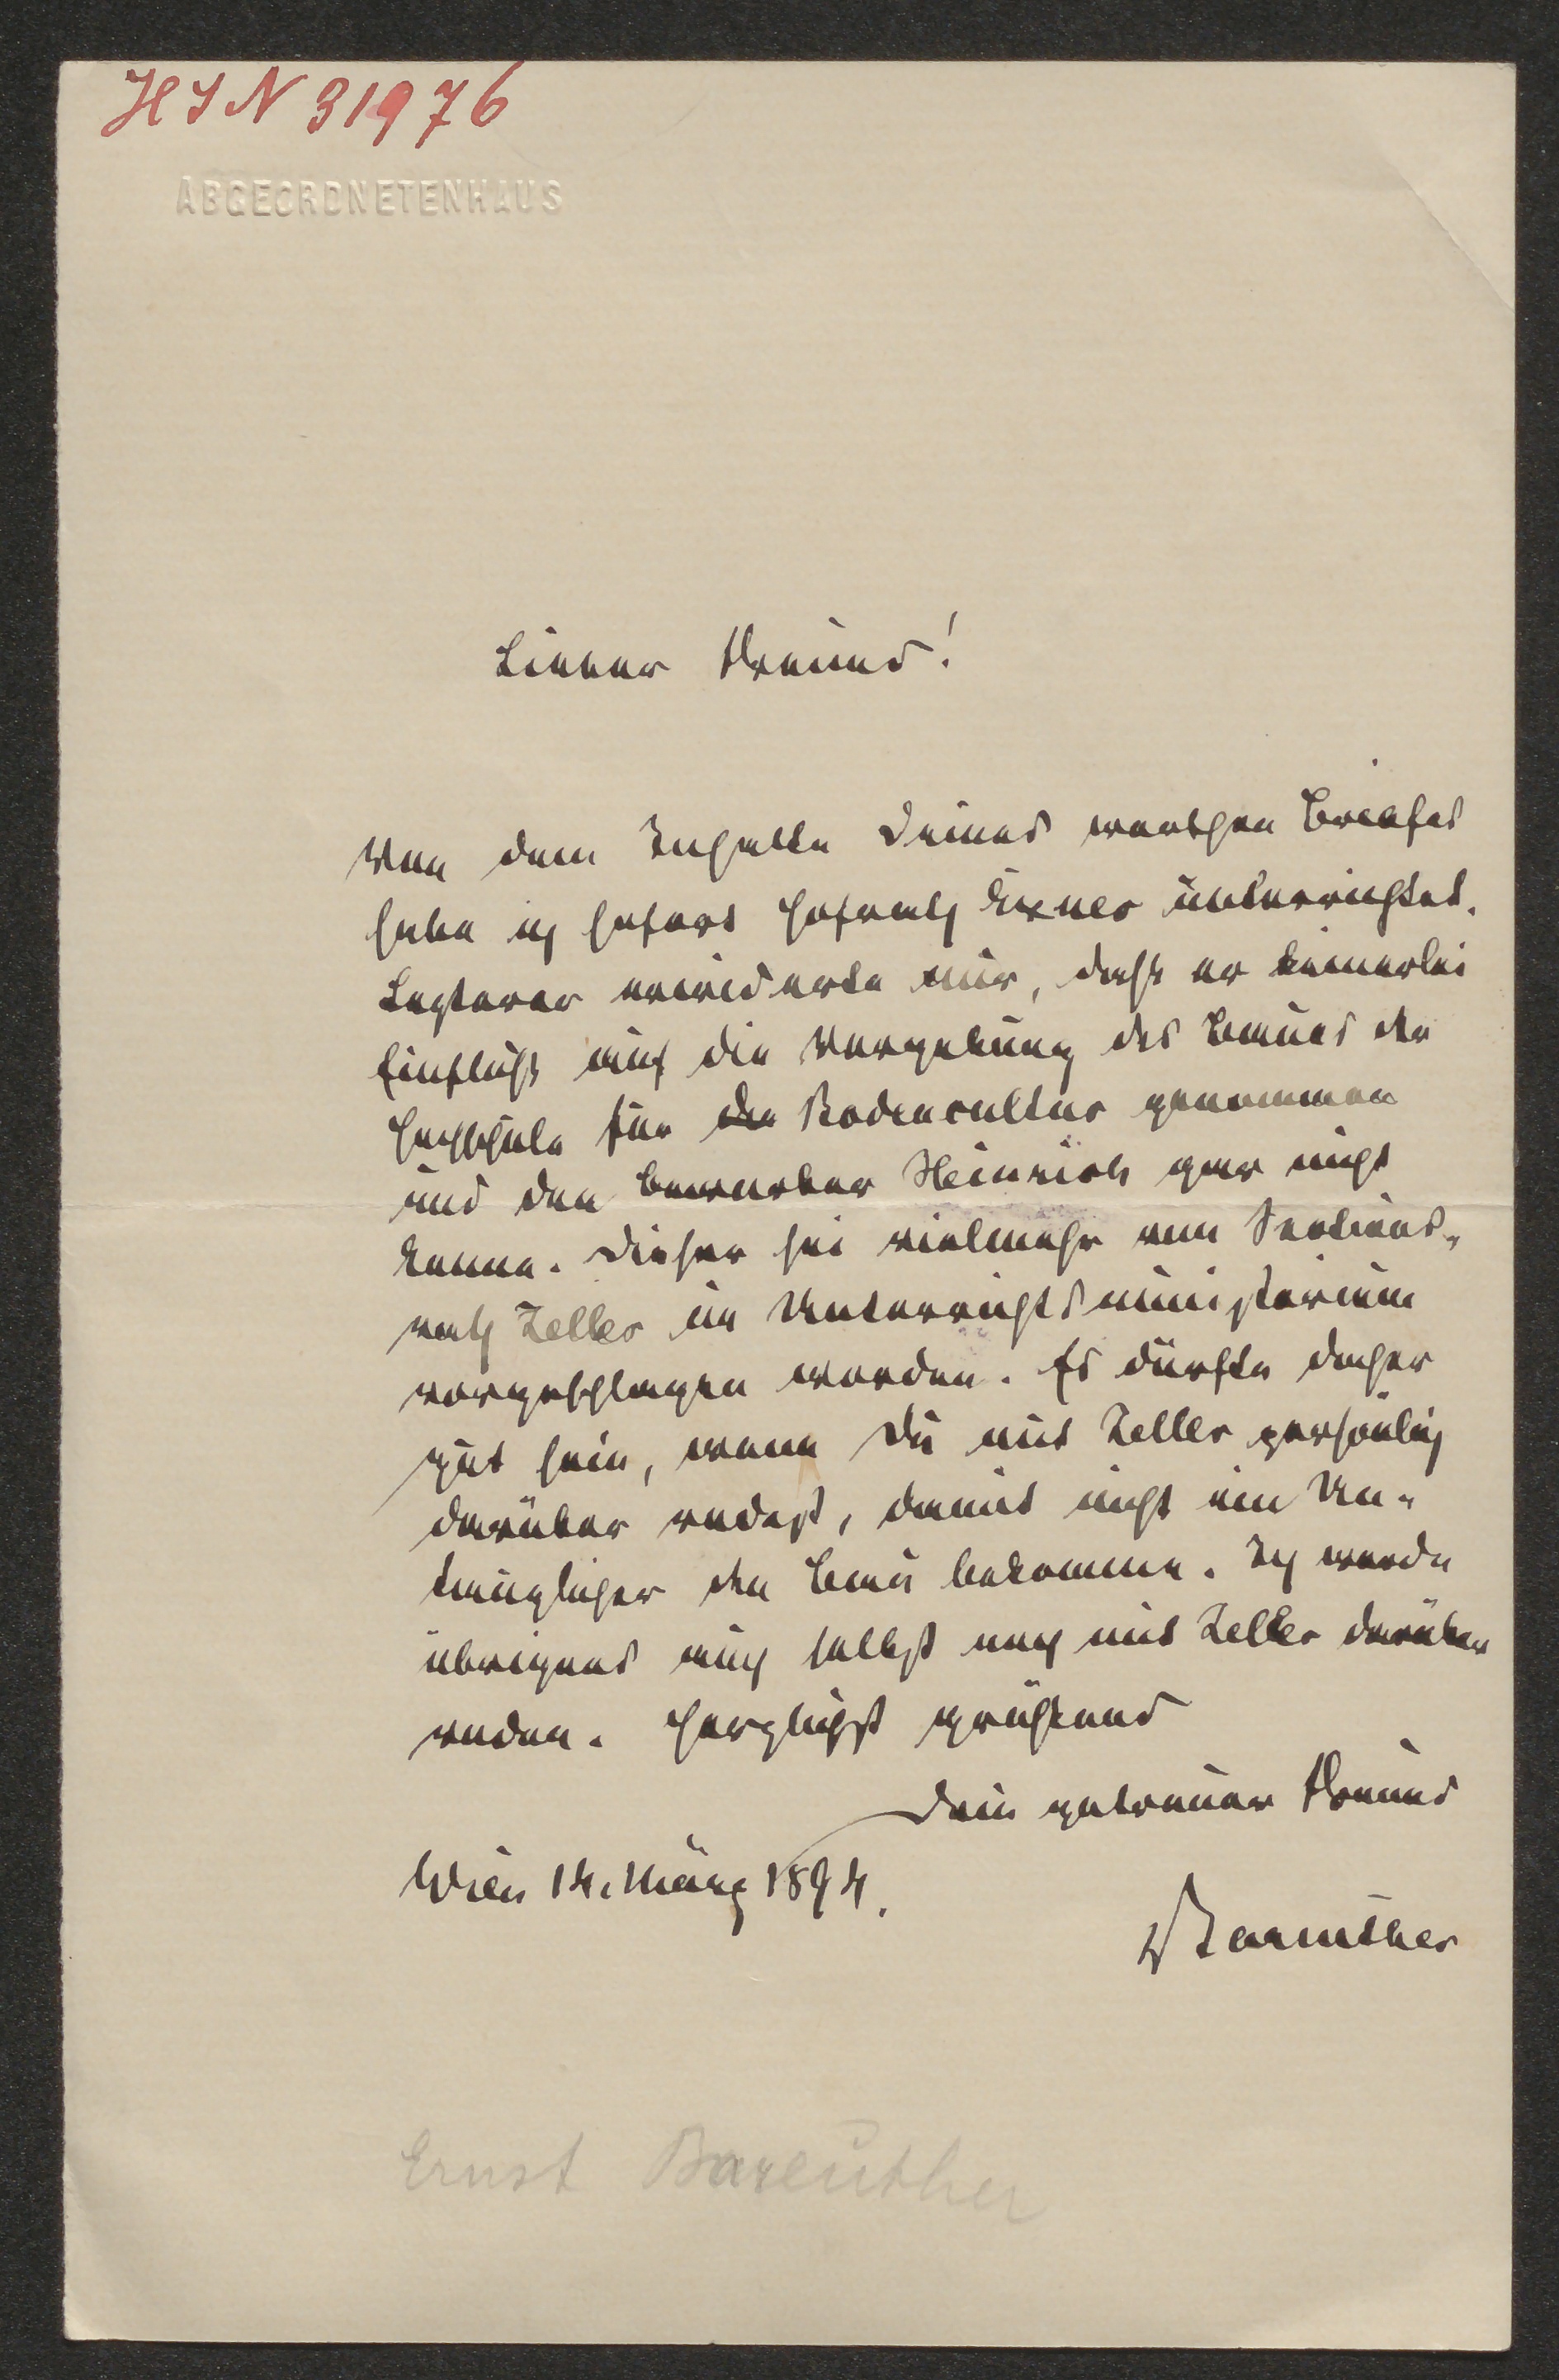 HIN 31976
ABGEORDNETENHAUS
Lieber Freund!
Von dem Inhalte Deines werthen Briefes
habe ich sofort Hofrath Exner unterrichtet.
Letzterer erwiderte mir, dass er keinerlei
Einfluss auf die Vergebung des Baues der
Hochschule für Bodencultur genommen
und den Bewerber Heinrich gar nicht
kenne. Dieser sei vielmehr vom Sections-
rath Zeller im Unterrichtsministerium
vorgeschlagen worden. Es dürfte daher
gut sein, wenn Du mit Zeller persönlich
darüber redest, damit nicht ein Un-
tauglicher den Bau bekomme. Ich werde
übrigens auch selbst noch mit Zeller darüber
reden. Herzlichst grüssend
Dein getreuer Freund
Wien 14. März 1894.
Bareuther
Ernst Bareuther